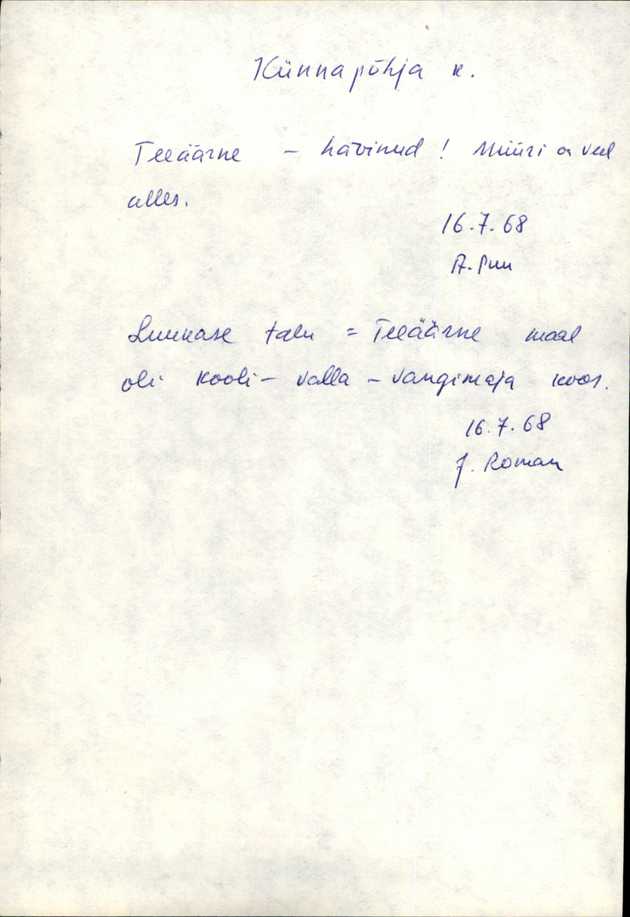 Künnapõhja k.
Teeäärne – hävinud! Müüri on veel
alles.
16.7.68
A. Puu
Luukase talu = Teeäärne maal
oli kooli – valla – vangimaja koos.
16.7.68
J. Roman